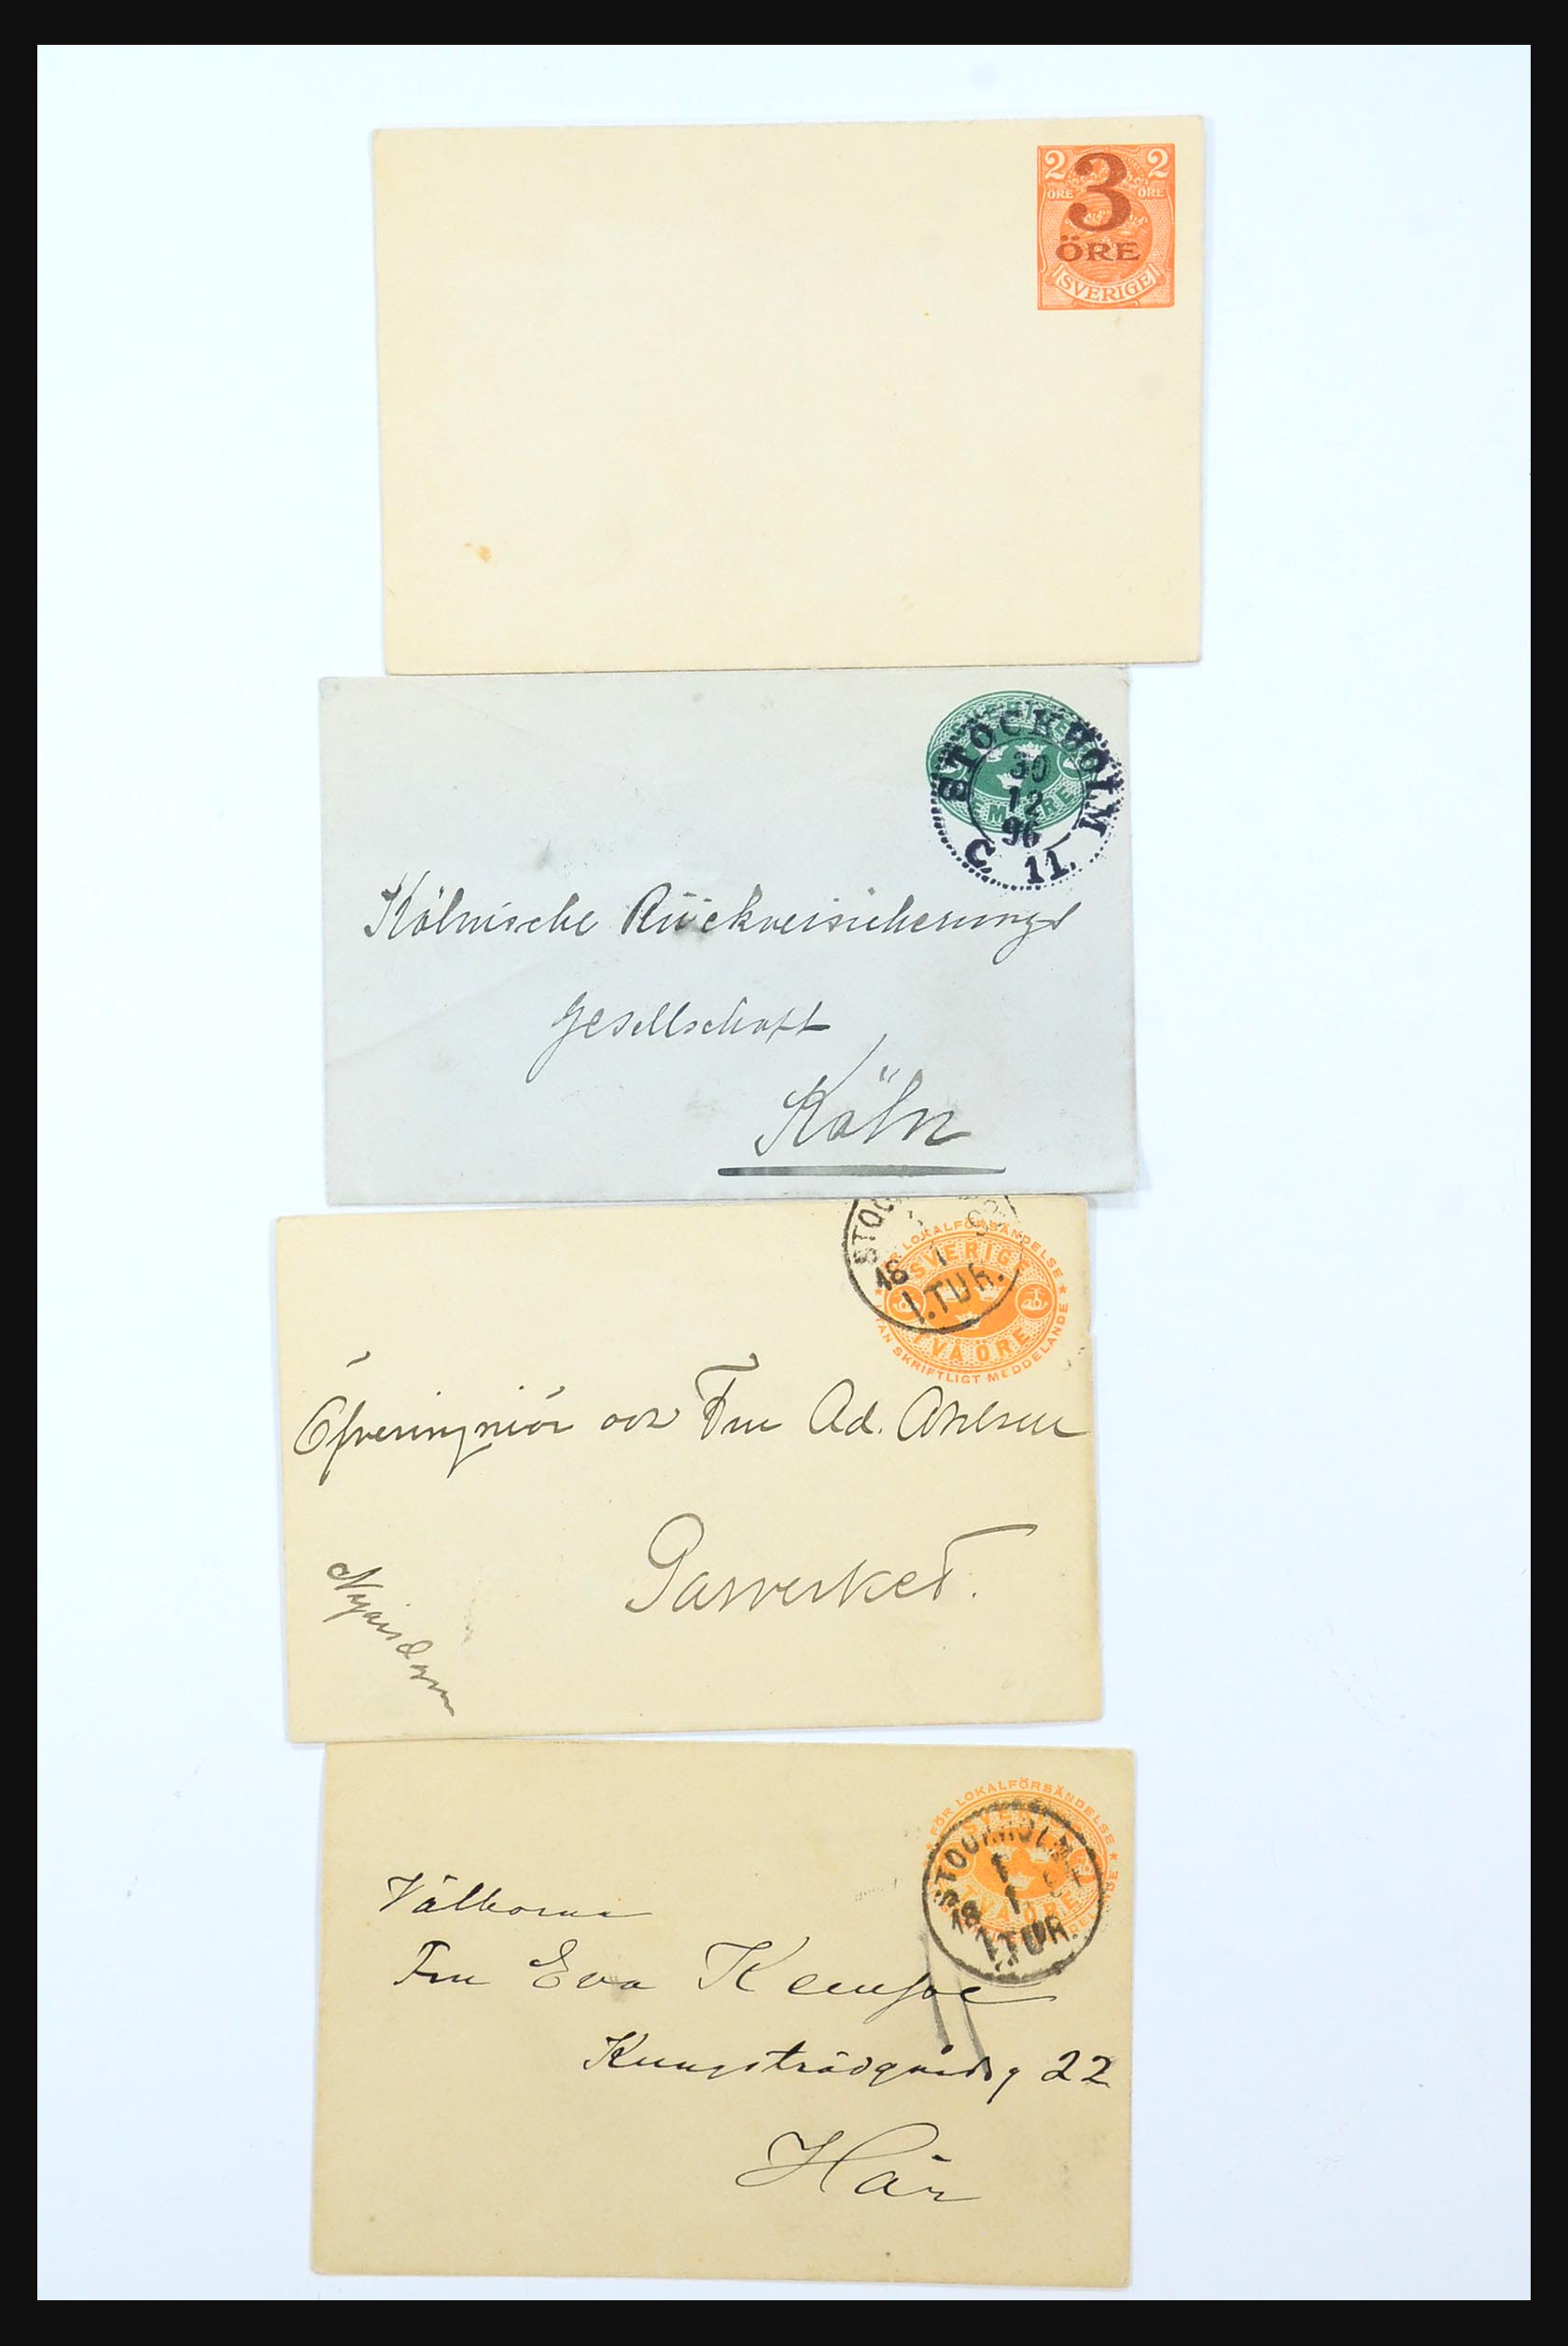 2 3 2
ÖRE ÖRE
ÖRE
SVERIGE
STOCKHOLM
30
12
96
C. 11.
Kölnische Rückversicherungs
Gesellschaft
Köln
LOKALFÖRSÄNDELSE
SVERIGE
TVÅ ÖRE
SKRIFTLIGT MEDDELANDE
18 1
1.TUR.
Öfveringniör och Fru Ad. Ahlsell
Gasverket.
FÖR LOKALFÖRSÄNDELSE
TVÅ ÖRE
STOCKHOLM
1
18 1
1.TUR.
Välborna
Fru Eva Kempe
Kungsträdgårdsg 22
Här